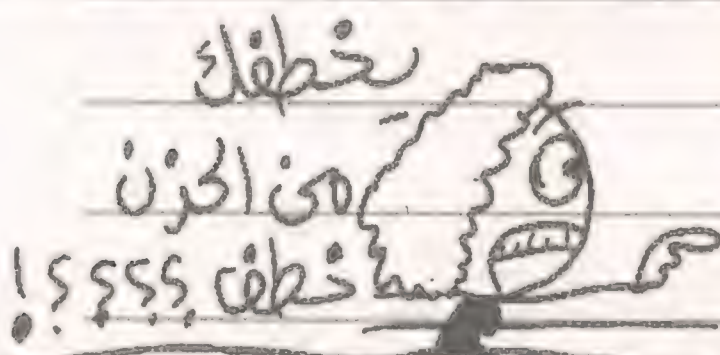 بخطفك
من الحزن
خطف ؟؟؟؟!